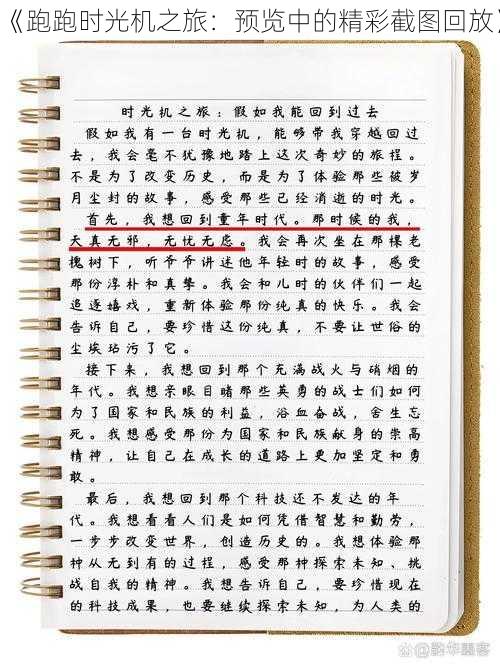 《跑跑时光机之旅：预览中的精彩截图回放》
时光机之旅：假如我能回到过去
假如我有一台时光机，能够带我穿越回过
去，我会毫不犹豫地踏上这次奇妙的旅程。
不是为了改变历史，而是为了体验那些被岁
月尘封的故事，感受那些已经消逝的时光。
首先，我想回到童年时代。那时候的我，
天真无邪，无忧无虑。我会再次坐在那棵老
槐树下，听爷爷讲述他年轻时的故事，感受
那份淳朴和真挚。我会和儿时的伙伴们一起
追逐嬉戏，重新体验那份纯真的快乐。我会
告诉自己，要珍惜这份纯真，不要让世俗的
尘埃玷污了它。
接下来，我想回到那个充满战火与硝烟的
年代。我想亲眼目睹那些英勇的战士们如何
为了国家和民族的利益，浴血奋战，舍生忘
死。我想感受那份为国家和民族献身的崇高
精神，让自己在成长的道路上更加坚定和勇
敢。
最后，我想回到那个科技还不发达的年
代。我想看看人们是如何凭借智慧和勤劳，
一步步改变世界，创造历史的。我想体验那
种从无到有的过程，感受那种探索未知、挑
战自我的精神。我想告诉自己，要珍惜现在
的科技成果，也要继续探索未知，为人类的